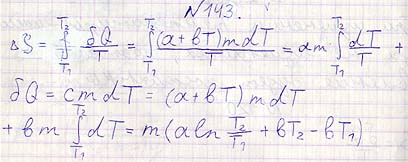 №143.
ΔS = ∫_{T₁}^{T₂} δQ/T = ∫_{T₁}^{T₂} (a+bT)mdT/T = am ∫_{T₁}^{T₂} dT/T +
δQ = cmdT = (a+bT)mdT
+ bm ∫_{T₁}^{T₂} dT = m(a ln T₂/T₁ + bT₂ - bT₁)